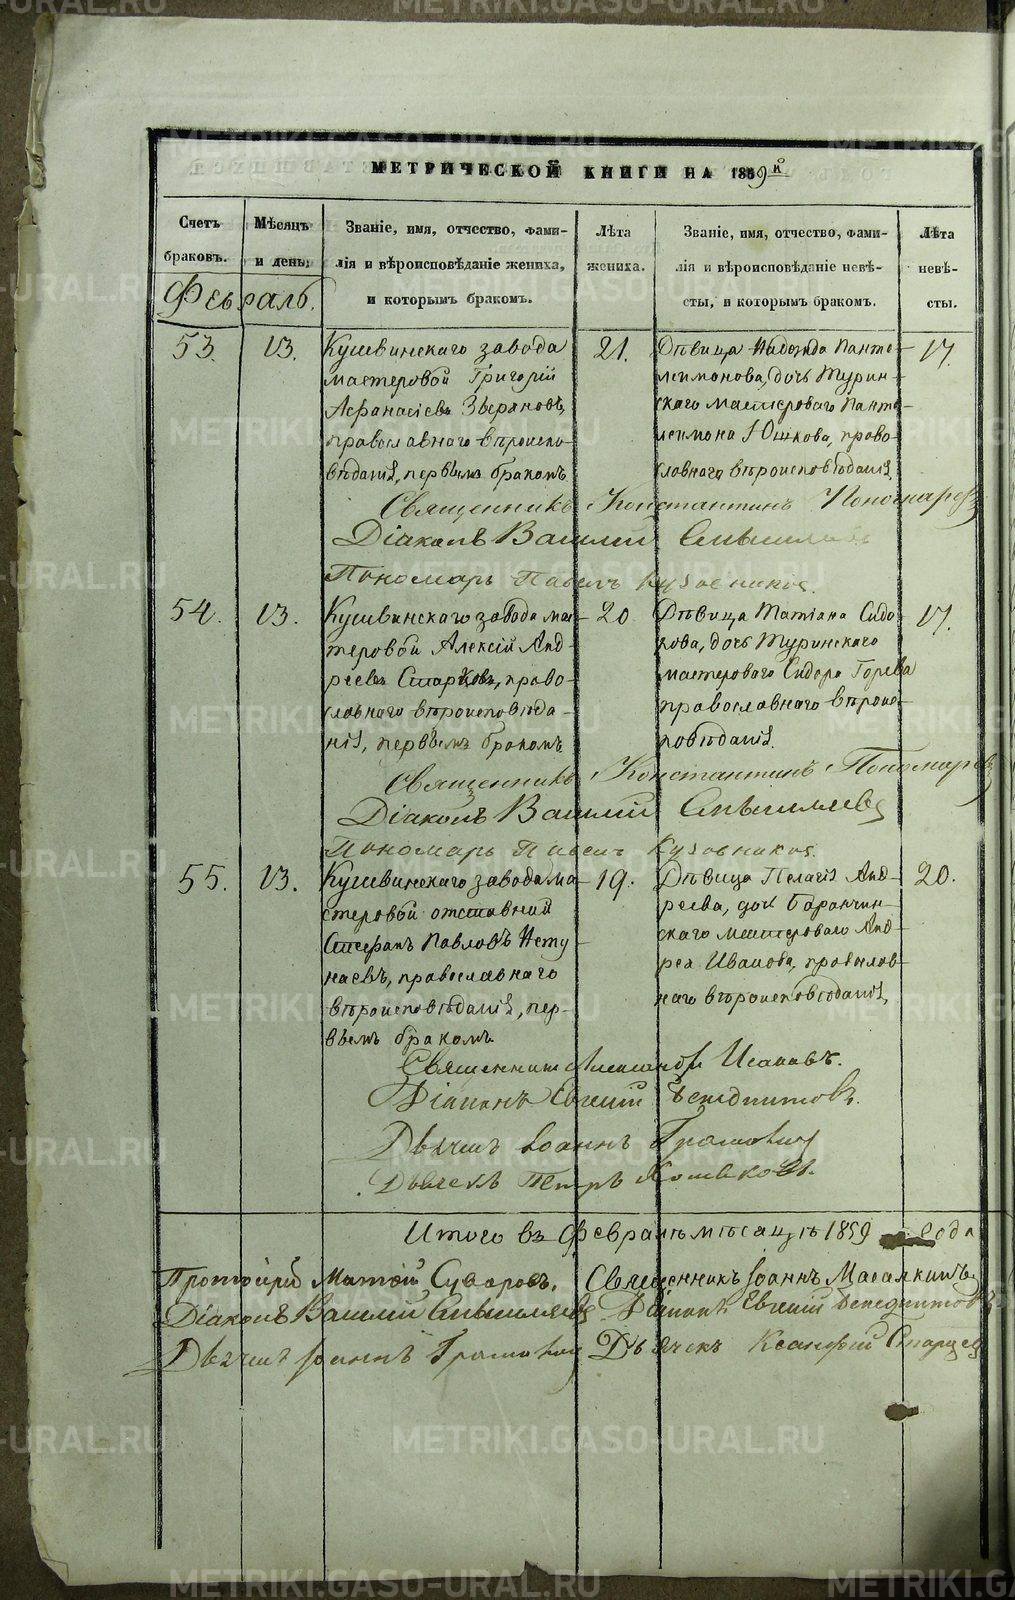 МЕТРИЧЕСКОЙ КНИГИ НА 1859й
Счетъ браковъ.
Мѣсяцъ и день.
Званіе, имя, отчество, фами-
лія и вѣроисповѣданіе жениха,
и которымъ бракомъ.
Лѣта жениха.
Званіе, имя, отчество, фами-
лія и вѣроисповѣданіе невѣ-
сты, и которымъ бракомъ.
Лѣта невѣ-
сты.
Февраль.
53. 13.
Кушвинскаго завода
мастеровой Григорій
Афанасіевъ Зыряновъ,
православнаго вѣроиспо-
вѣданія, первымъ бракомъ
21.
Дѣвица Надежда Панте-
леимонова, дочь Турин-
скаго мастероваго Панте-
леимона Юшкова, право-
славнаго вѣроисповѣданія.
17.
Священникъ Константинъ Пономаревъ
Діаконъ Василій
Пономарь Павелъ Кузовниковъ.
54. 13.
Кушвинскаго завода мас-
теровой Алексій Анд-
реевъ Старцовъ, право-
славнаго вѣроисповѣда-
нія, первымъ бракомъ
20
Дѣвица Татіана Сидо-
рова, дочь Туринскаго
мастероваго Сидора Горева
православнаго вѣроис-
повѣданія.
17.
Священникъ Константинъ Пономаревъ
Діаконъ Василій
Пономарь Павелъ Кузовниковъ.
55. 13.
Кушвинскаго завода ма-
стеровой отставный
Стефанъ Павловъ Нету-
наевъ, православнаго
вѣроисповѣданія, пер-
вымъ бракомъ
19.
Дѣвица Пелагія Анд-
реева, дочь Баранчин-
скаго мастероваго Анд-
рея Иванова, православ-
наго вѣроисповѣданія,
20.
Священникъ Александръ Исаковъ.
Діаконъ Евгеній Бенедиктовъ.
Дьячекъ Іоаннъ
Дьячекъ Петръ
Итого въ Февралѣ мѣсяцѣ 1859 года
Протоіерей Матѳій Суворовъ. Священникъ Іоаннъ
Діаконъ Василій Діаконъ Евгеній Бенедиктовъ
Дьячекъ Іоаннъ Дьячекъ Ксанфій Старцевъ
METRIKI.GASO-URAL.RU